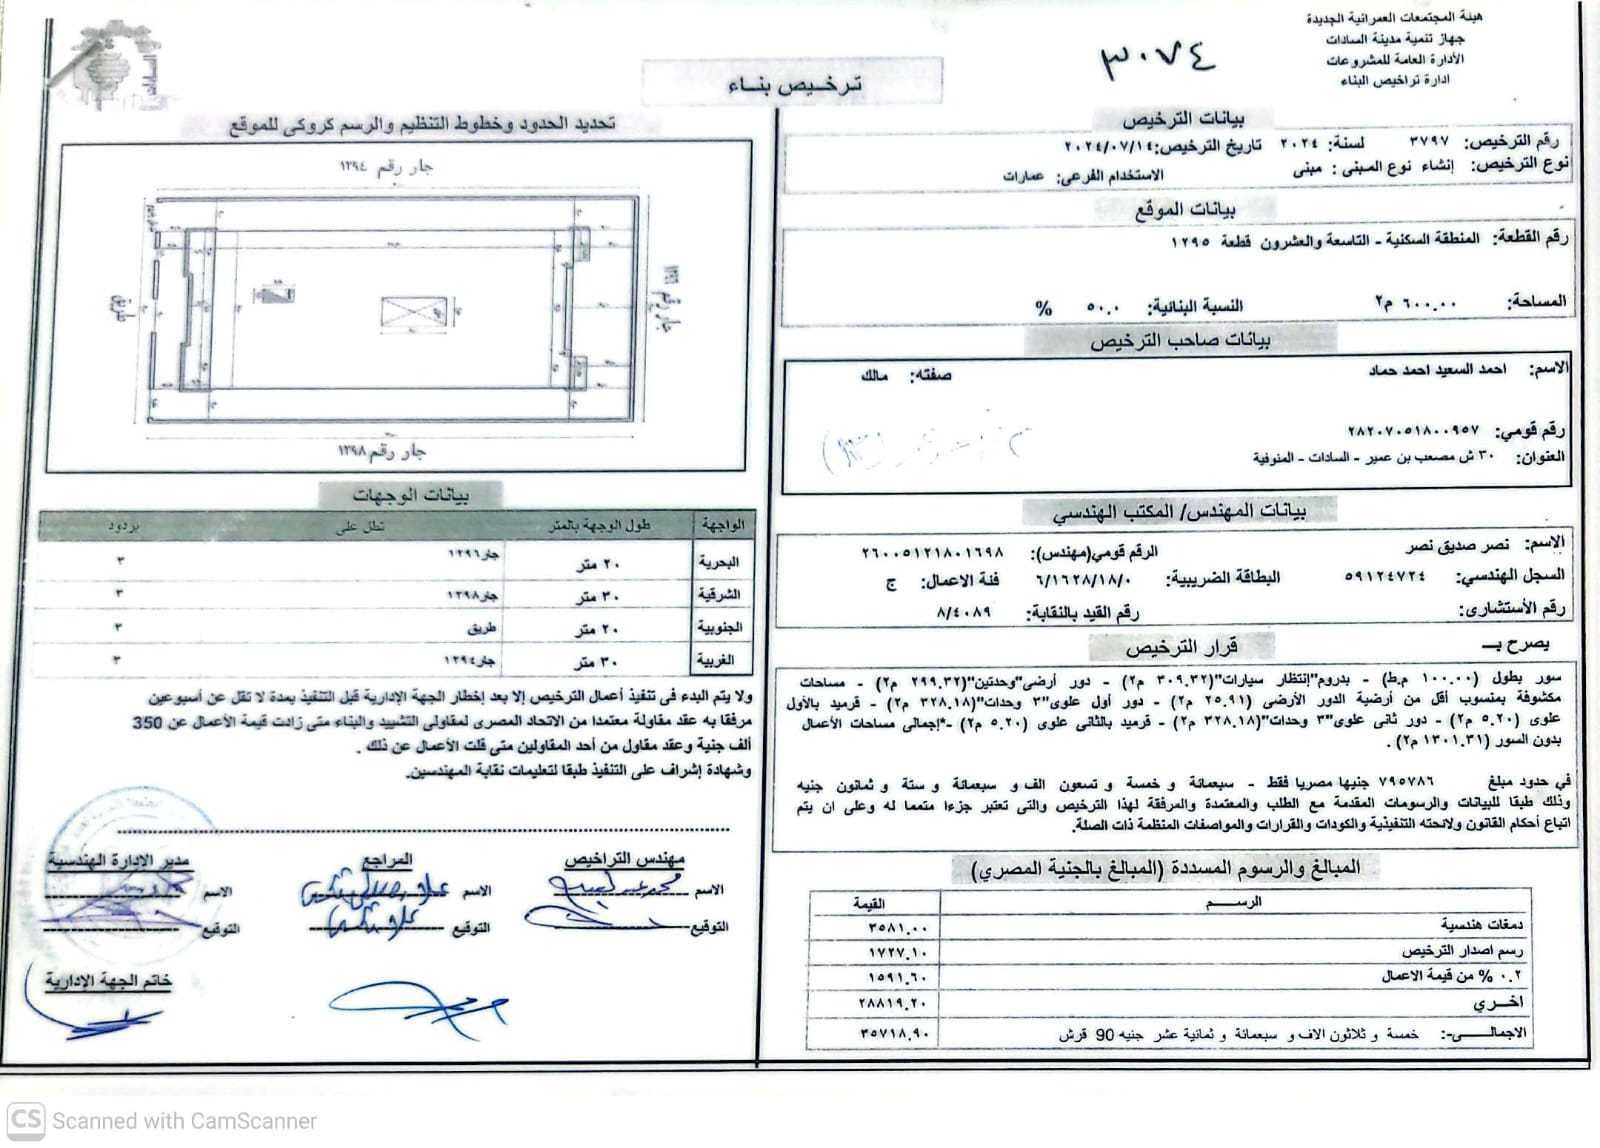 هيئة المجتمعات العمرانية الجديدة
جهاز تنمية مدينة السادات
الأدارة العامة للمشروعات
ادارة تراخيص البناء
٣٠٧٤
ترخيص بناء
السادات
بيانات الترخيص
رقم الترخيص: ٣٧٩٧ لسنة: ٢٠٢٤ تاريخ الترخيص: ٢٠٢٤/٠٧/١٤
نوع الترخيص: إنشاء نوع المبنى : مبنى الاستخدام الفرعى: عمارات
بيانات الموقع
رقم القطعة: المنطقة السكنية - التاسعة والعشرون قطعة ١٢٩٥
المساحة: ٦٠٠.٠٠ م٢ النسبة البنائية: ٥٠.٠ %
بيانات صاحب الترخيص
الاسم: احمد السعيد احمد حماد صفته: مالك
رقم قومي: ٢٨٢٠٧٠٥١٨٠٠٩٥٧
العنوان: ٣٠ ش مصعب بن عمير - السادات - المنوفية
بيانات المهندس/ المكتب الهندسي
الإسم: نصر صديق نصر الرقم قومي(مهندس): ٢٦٠٠٥١٢١٨٠١٦٩٨
السجل الهندسي: ٥٩١٢٤٧٢٤ البطاقة الضريبية: ٦/١٦٢٨/١٨/٠ فئة الاعمال: ج
رقم الأستشارى: رقم القيد بالنقابة: ٨/٤٠٨٩
يصرح بـ قرار الترخيص
سور بطول (١٠٠.٠٠ م.ط) - بدروم"إنتظار سيارات"(٣٠٩.٣٢ م٢) - دور أرضى"وحدتين"(٢٩٩.٣٢ م٢) - مساحات
مكشوفة بمنسوب أقل من أرضية الدور الأرضى (٢٥.٩١ م٢) - دور أول علوى"٣ وحدات"(٣٢٨.١٨ م٢) - قرميد بالأول
علوى (٥.٢٠ م٢) - دور ثانى علوى"٣ وحدات"(٣٢٨.١٨ م٢) - قرميد بالثانى علوى (٥.٢٠ م٢) -*إجمالى مساحات الأعمال
بدون السور (١٣٠١.٣١ م٢) .
في حدود مبلغ ٧٩٥٧٨٦ جنيها مصريا فقط - سبعمائة و خمسة و تسعون الف و سبعمائة و ستة و ثمانون جنيه
وذلك طبقا للبيانات والرسومات المقدمة مع الطلب والمعتمدة والمرفقة لهذا الترخيص والتى تعتبر جزءا متمما له وعلى ان يتم
اتباع أحكام القانون ولائحته التنفيذية والكودات والقرارات والمواصفات المنظمة ذات الصلة.
المبالغ والرسوم المسددة (المبالغ بالجنية المصري)
الرسم القيمة
دمغات هندسية ٣٥٨١.٠٠
رسم اصدار الترخيص ١٧٢٧.١٠
٠.٢ % من قيمة الاعمال ١٥٩١.٦٠
اخرى ٢٨٨١٩.٢٠
الاجمالى:- خمسة و ثلاثون الاف و سبعمائة و ثمانية عشر جنيه 90 قرش ٣٥٧١٨.٩٠
تحديد الحدود وخطوط التنظيم والرسم كروكى للموقع
جار رقم ١٢٩٤
جار رقم ١٢٩٦
طريق
جار رقم ١٢٩٨
بيانات الوجهات
الواجهة طول الوجهة بالمتر تطل على بردود
البحرية ٢٠ متر جار١٢٩٦ ٣
الشرقية ٣٠ متر جار١٢٩٨ ٣
الجنوبية ٢٠ متر طريق ٣
الغربية ٣٠ متر جار١٢٩٤ ٣
ولا يتم البدء فى تنفيذ أعمال الترخيص إلا بعد إخطار الجهة الإدارية قبل التنفيذ بمدة لا تقل عن أسبوعين
مرفقا به عقد مقاولة معتمدا من الاتحاد المصرى لمقاولى التشييد والبناء متى زادت قيمة الأعمال عن 350
ألف جنية وعقد مقاول من أحد المقاولين متى قلت الأعمال عن ذلك .
وشهادة إشراف على التنفيذ طبقا لتعليمات نقابة المهندسين.
مهندس التراخيص المراجع مدير الإدارة الهندسية
الاسم الاسم الاسم
التوقيع التوقيع التوقيع
خاتم الجهة الإدارية
CS Scanned with CamScanner